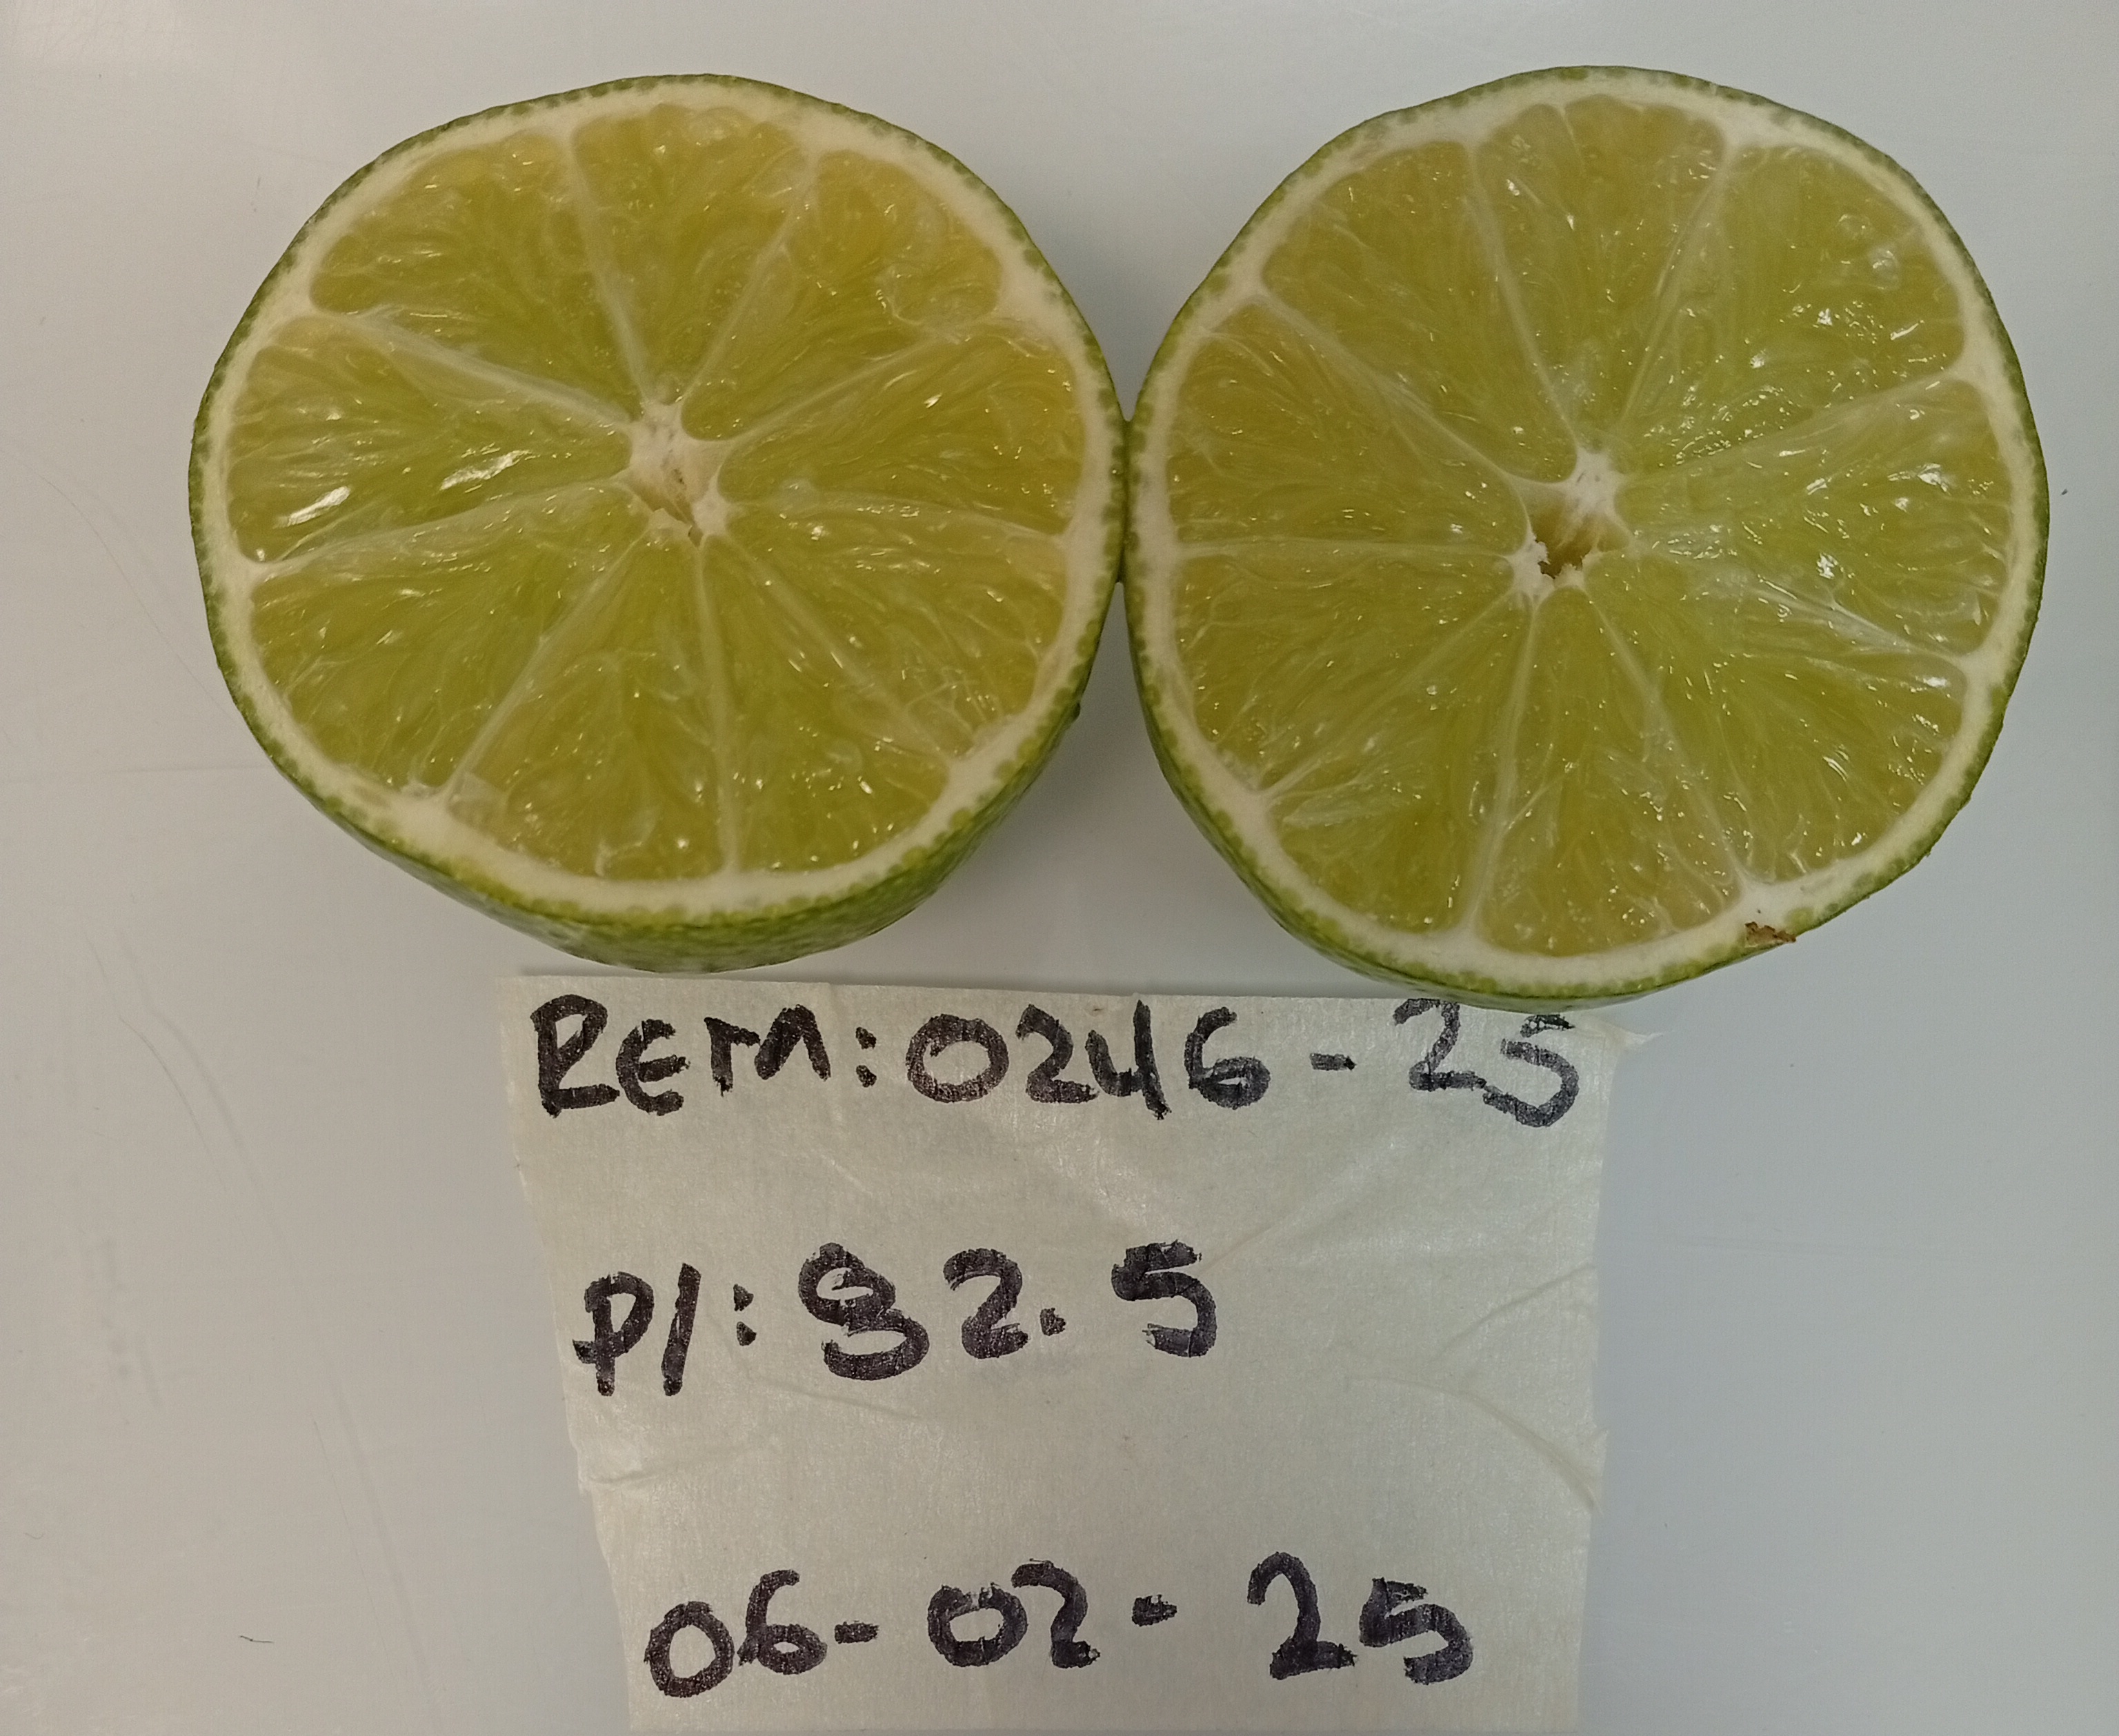 REM: 0246-25
P/: 82.5
06-02-25